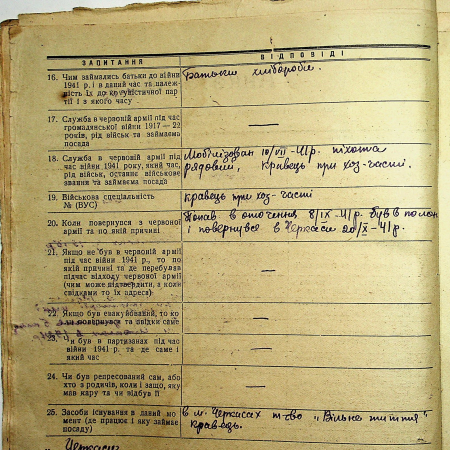 ЗАПИТАННЯ
ВІДПОВІДІ
16. Чим займались батьки до війни
1941 р. і в даний час та належ-
ність їх до комуністичної пар-
тії і з якого часу
Батьки хлібороби.
17. Служба в червоній армії під час
громадянської війни 1917—22
років, рід військ та займаема
посада
—
18. Служба в червоній армії під
час війни 1941 року, який час,
рід військ, останнє військове
звання та займаема посада
Мобілізован 10/VII-41р. піхота
рядовий, кравець при хоз-часті.
19. Військова спеціальність
№ (ВУС)
кравець при хоз-часті
20. Коли повернувся з червоної
армії та по якій причині
Попав в оточення 8/IX-41р. був в полон
і повернувся в Черкаси 20/X-41р.
21. Якщо не був в червоній армії
під час війни 1941 р., то по
якій причині та де перебував
підчас відходу червоної армії
(чим може підтвердити, а коли
свідками то їх адреса)
—
22. Якщо був евакуйований, то ко
ли повернувся та звідки саме
—
23. Чи був в партизанах під час
війни 1941 р. та де саме і
який час
—
24. Чи був репресований сам, або
хто з родичів, коли і защо, яку
мав кару та чи відбув її
—
25. Засоби існування в даний мо-
мент (де працює і яку займає
посаду)
в м. Черкасах т-во „Вільне життя"
кравець.
Черкаси